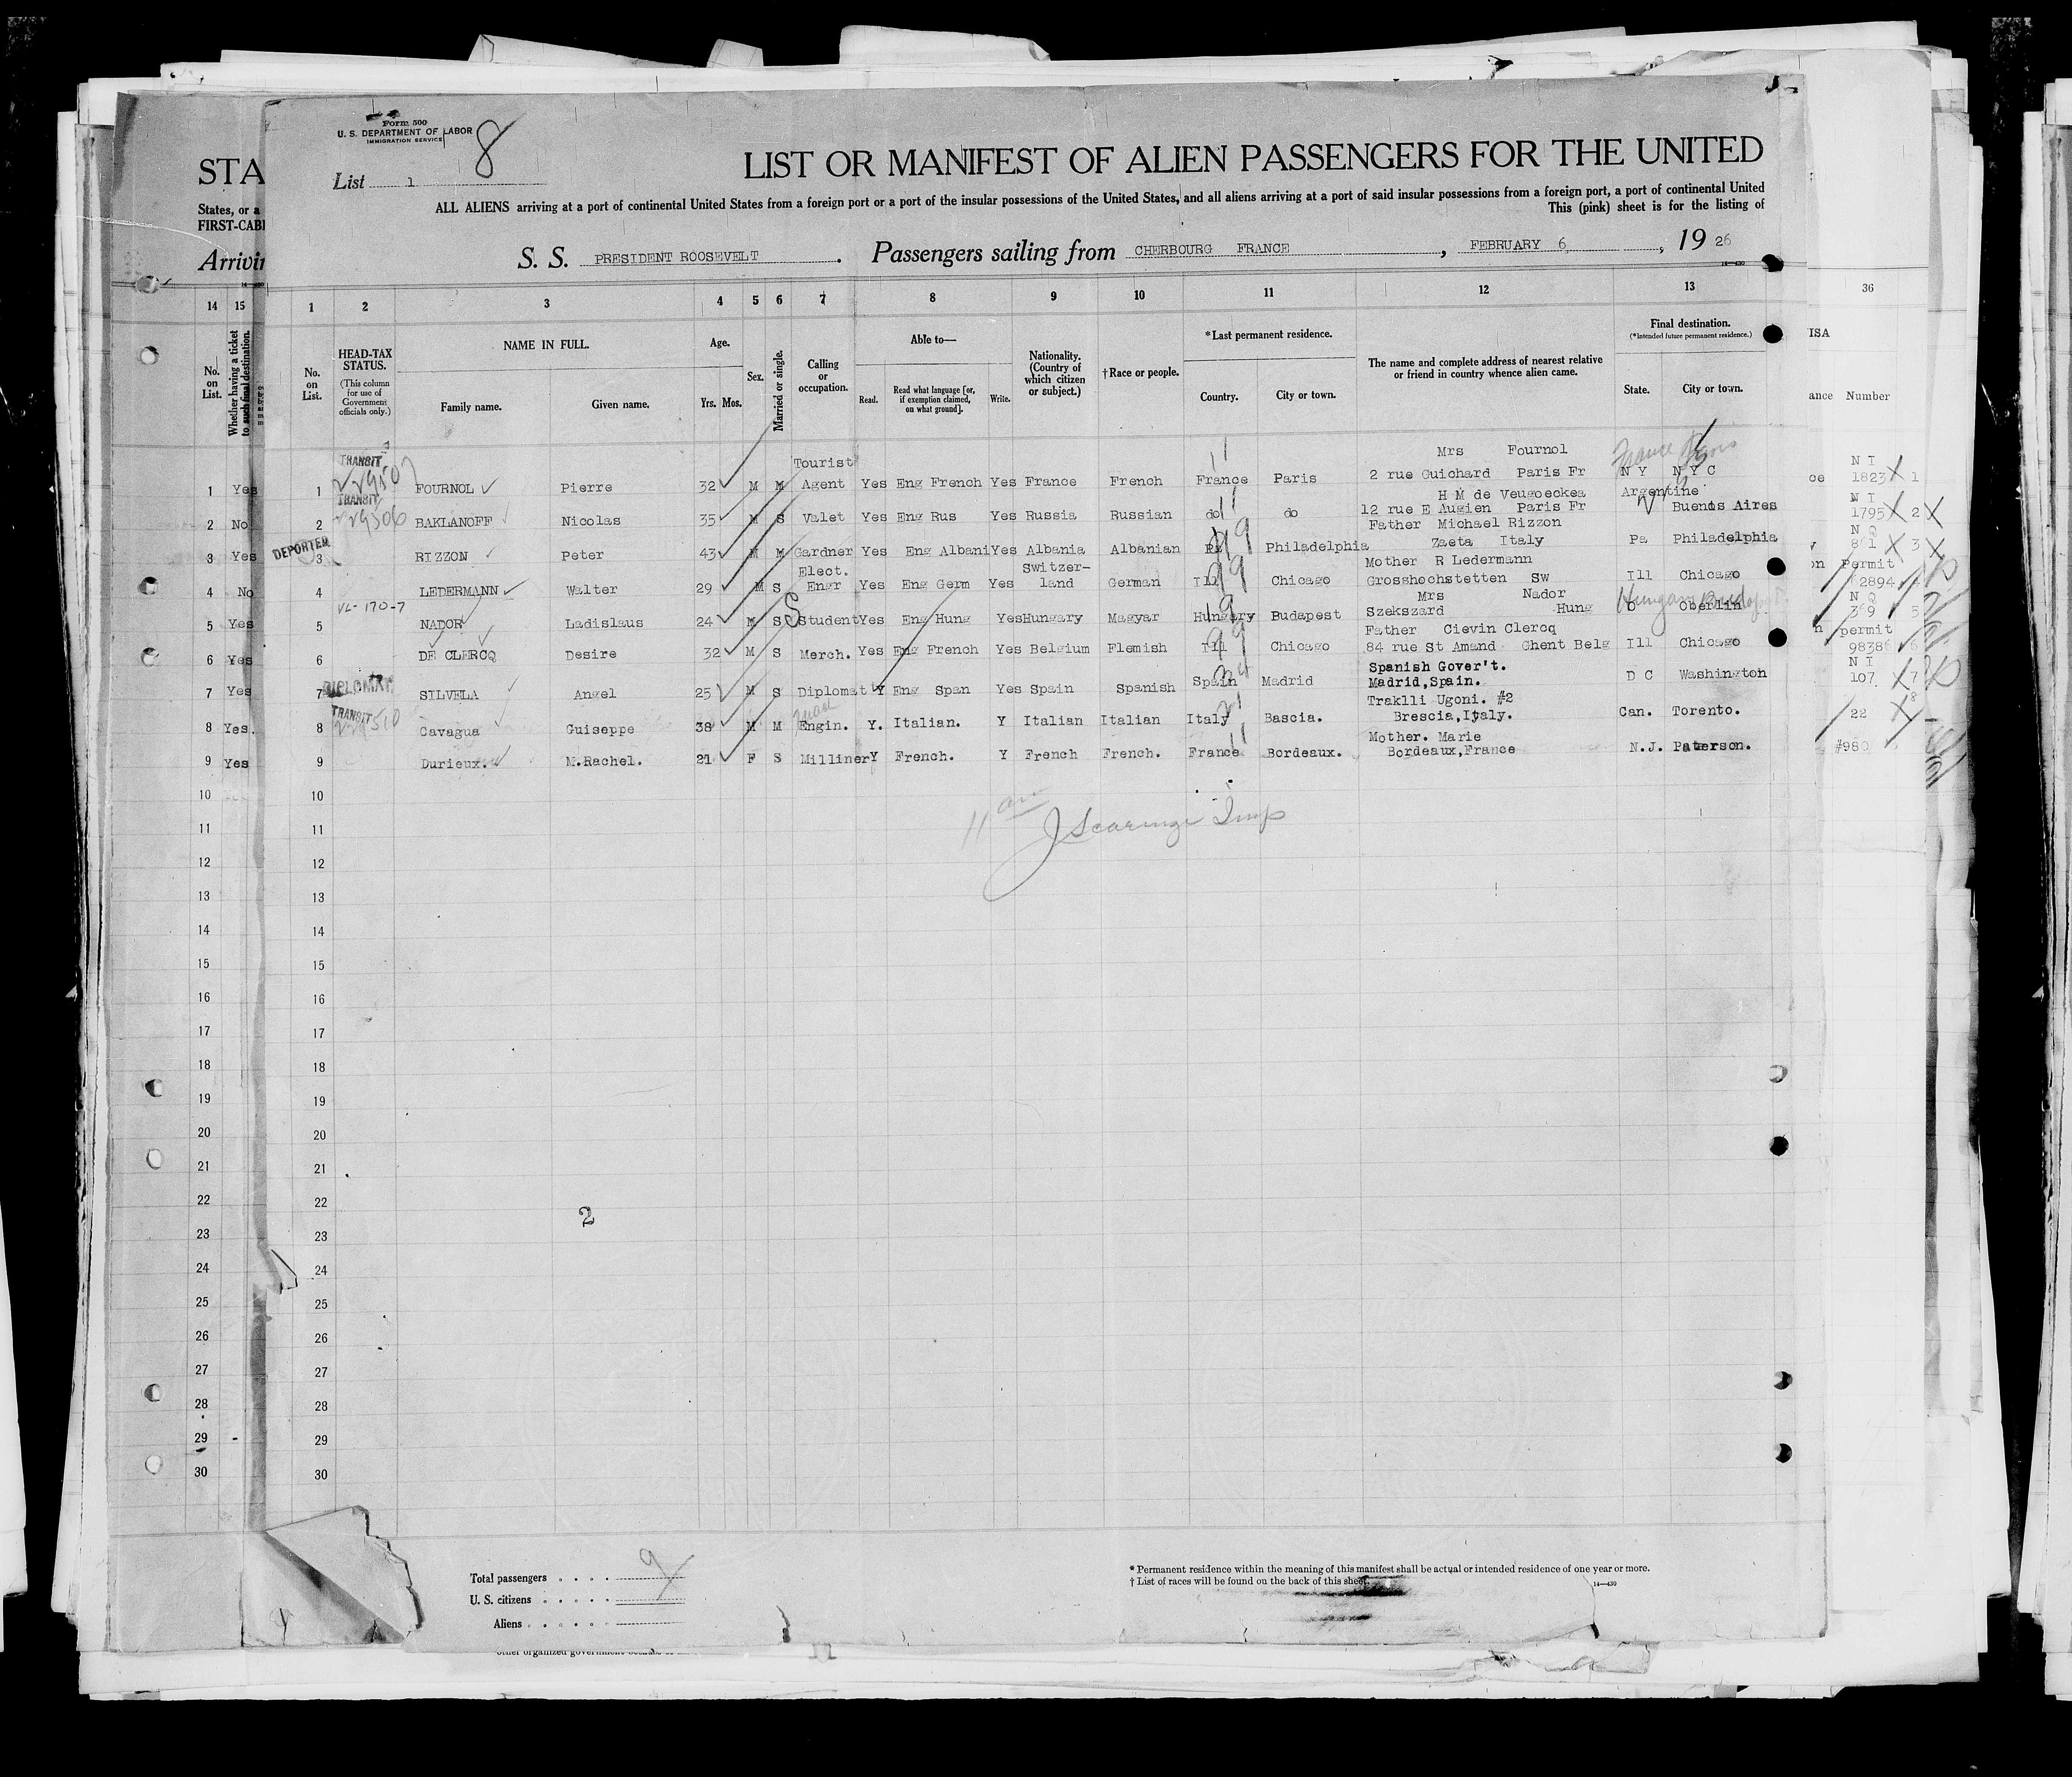 Form 500
U. S. DEPARTMENT OF LABOR
IMMIGRATION SERVICE
8
STA
List 1
LIST OR MANIFEST OF ALIEN PASSENGERS FOR THE UNITED
States, or a
FIRST-CABI
ALL ALIENS arriving at a port of continental United States from a foreign port or a port of the insular possessions of the United States, and all aliens arriving at a port of said insular possessions from a foreign port, a port of continental United
This (pink) sheet is for the listing of
Arrivin
S. S. PRESIDENT ROOSEVELT . Passengers sailing from CHERBOURG FRANCE , FEBRUARY 6 , 19 26
14 15 1 2 3 4 5 6 7 8 9 10 11 12 13 36
No. on List.
Whether having a ticket to such final destination.
No. on List.
HEAD-TAX STATUS.
(This column for use of Government officials only.)
NAME IN FULL.
Family name. Given name.
Age.
Yrs. Mos.
Sex.
Married or single.
Calling or occupation.
Able to—
Read. Read what language [or, if exemption claimed, on what ground]. Write.
Nationality. (Country of which citizen or subject.)
†Race or people.
*Last permanent residence.
Country. City or town.
The name and complete address of nearest relative or friend in country whence alien came.
Final destination.
(*Intended future permanent residence.)
State. City or town.
ISA
ance Number
TRANSIT
Tourist Mrs Fournol N I
1 Yes 1 FOURNOL Pierre 32 M M Agent Yes Eng French Yes France French France Paris 2 rue Guichard Paris Fr N Y N Y C ce 1823 1
TRANSIT
H M de Veugoeckea Argentine N I
2 No 2 BAKLANOFF Nicolas 35 M S Valet Yes Eng Rus Yes Russia Russian do do 12 rue E Augien Paris Fr Buenos Aires 1795 2
DEPORTED
Father Michael Rizzon N Q
3 Yes 3 RIZZON Peter 43 M M Gardner Yes Eng Albani Yes Albania Albanian Philadelphia Zaeta Italy Pa Philadelphia 861 3
Elect. Switzer- Mother R Ledermann Permit
4 No 4 LEDERMANN Walter 29 M S Engr Yes Eng Germ Yes land German Ill Chicago Grosshochstetten Sw Ill Chicago 62894
VL-170-7
Mrs Nador N Q
5 Yes 5 NADOR Ladislaus 24 M S Student Yes Eng Hung Yes Hungary Magyar Hungary Budapest Szekszard Hung O Oberlin 369 5
Father Cievin Clercq permit
6 Yes 6 DE CLERCQ Desire 32 M S Merch. Yes Eng French Yes Belgium Flemish Ill Chicago 84 rue St Amand Ghent Belg Ill Chicago 98386 6
DIPLOMAT
Spanish Gover't. N I
7 Yes 7 SILVELA Angel 25 M S Diplomat Y Eng Span Yes Spain Spanish Spain Madrid Madrid,Spain. D C Washington 107 7
TRANSIT
Traklli Ugoni. #2
8 Yes. 8 Cavagua Guiseppe 38 M M Engin. Y. Italian. Y Italian Italian Italy Bascia. Brescia,Italy. Can. Torento. 22 8
Mother. Marie
9 Yes 9 Durieux. M.Rachel. 21 F S Milliner Y French. Y French French. France Bordeaux. Bordeaux,France N.J. Paterson. #980
10 10
11 am
11 11
12 12
13 13
14 14
15 15
16 16
17 17
18 18
19 19
20 20
21 21
22 22
2
23 23
24 24
25 25
26 26
27 27
28 28
29 29
30 30
Total passengers 9
U. S. citizens
Aliens
* Permanent residence within the meaning of this manifest shall be actual or intended residence of one year or more.
† List of races will be found on the back of this sheet.
14—430